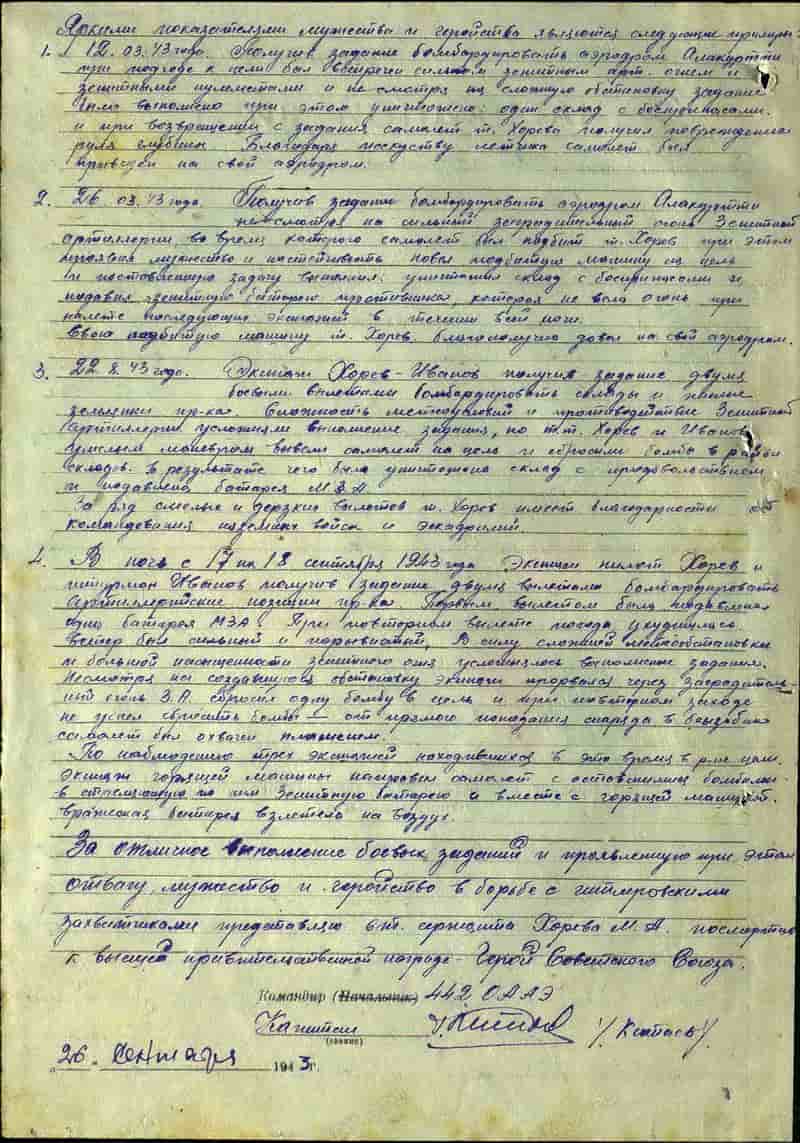 Яркими показателями мужества и геройства являются следующие примеры:
1. 12.03.43 года. Получив задание бомбардировать аэродром Алакуртти
при подходе к цели был встречен сильным зенитным арт. огнем и
зенитными пулеметами и не смотря на сложную обстановку задание
было выполнено при этом уничтожено: один склад с боеприпасами.
и при возвращении с задания самолет т. Хорева получил повреждение
руля глубины. Благодаря искусству летчика самолет был
приведен на свой аэродром.
2. 26.03.43 года. Получив задание бомбардировать аэродром Алакуртти
несмотря на сильный заградительный огонь Зенитной
артиллерии, во время которого самолет был подбит т. Хорев при этом
проявил мужество и настойчивость повел подбитую машину на цель
и поставленную задачу выполнил: уничтожил склад с боеприпасами и
подавил зенитную батарею противника, которая не вела огонь при
налете последующих экипажей в течении всей ночи.
Свою подбитую машину т. Хорев благополучно довел на свой аэродром.
3. 22.8.43 года. Экипаж Хорев-Иванов получив задание двумя
боевыми вылетами бомбардировать склады и жилые
землянки пр-ка. Сложность метеоусловий и противодействие Зенитной
артиллерии усложняли выполнение задания, но т.т. Хорев и Иванов
умелым маневром вывели самолет на цель и сбросили бомбы в район
складов. В результате чего был уничтожен склад с продовольствием
и подавлена батарея МЗА
За ряд смелых и дерзких вылетов т. Хорев имеет благодарности от
командования наземных войск и эскадрилий.
4. В ночь с 17 на 18 сентября 1943 года Экипаж пилот Хорев и
штурман Иванов получив задание двумя вылетами бомбардировать
артиллерийские позиции пр-ка. Первым вылетом была подавлена
одна батарея МЗА. При повторном вылете погода ухудшилась.
Ветер был сильный и порывистый, В силу сложной метеобстановки
и большой насыщенности зенитного огня усложнялось выполнение задания.
Несмотря на создавшуюся обстановку экипаж прорвался через заградитель-
ный огонь З.А. сбросил одну бомбу в цель и при повторном заходе
не успел сбросить бомбы – от прямого попадания снаряда в бензобак
самолет был охвачен пламенем.
По наблюдению трех экипажей находившихся в это время в р-не цели.
Экипаж горящей машины направил самолет с оставшимися бомбами
в стреляющую по ним Зенитную батарею и вместе с горящей машиной.
вражеская батарея взлетела на воздух.
За отличное выполнение боевых заданий и проявленную при этом
отвагу, мужество и геройство в борьбе с гитлеровскими
захватчиками представляю ст. сержанта Хорева М.А. посмертно
к высшей правительственной награде – Герой Советского Союза.
Командир (Начальник) 442 ОААЭ
Капитан
(звание)
"26" сентября 1943г.